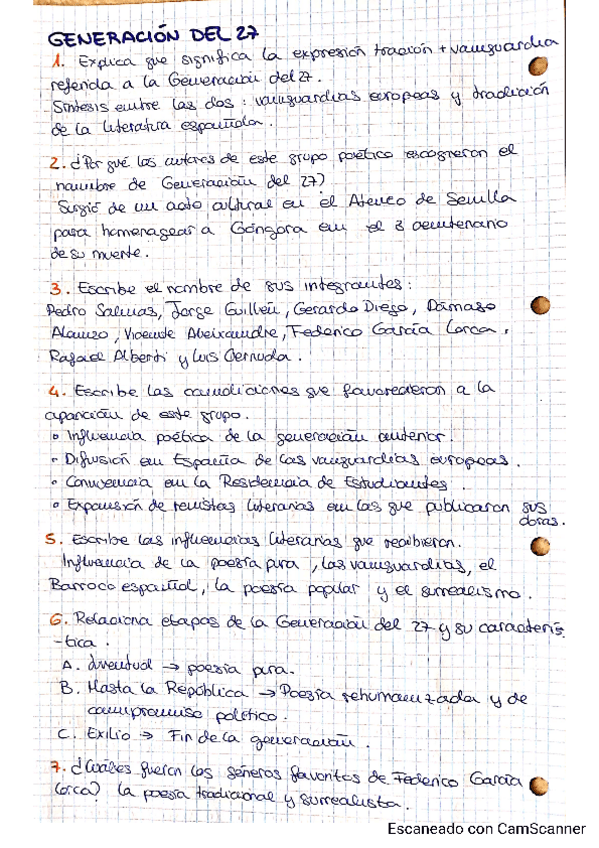 GENERACIÓN DEL 27
1. Explica que significa la expresión tradición + vanguardia
referida a la Generación del 27.
Síntesis entre las dos: vanguardias europeas y tradición
de la literatura española.
2. ¿Por qué los autores de este grupo poético escogieron el
nombre de Generación del 27)
Surgió de un acto cultural en el Ateneo de Sevilla
para homenagear a Góngora en el 3 centenario
de su muerte.
3. Escribe el nombre de sus integrantes:
Pedro Salinas, Jorge Guillén, Gerardo Diego, Dámaso
Alonzo, Vicente Aleixandre, Federico García Lorca,
Rafael Alberti y Luis Cernuda.
4. Escribe las condiciones que favorecieron a la
aparición de este grupo.
• Influencia poética de la generación anterior.
• Difusión en España de las vanguardias europeas.
• Convivencia en la Residencia de Estudiantes.
• Expansión de revistas literarias en las que publicaron sus
obras.
5. Escribe las influencias literarias que recibieron.
Influencia de la poesía pura, las vanguardias, el
Barroco español, la poesía popular y el surrealismo.
6. Relaciona etapas de la Generación del 27 y su caracterís-
-tica.
A. Juventud → poesía pura.
B. Hasta la República → Poesía rehumanizada y de
compromiso político.
C. Exilio → Fin de la generación.
7. ¿Cuáles fueron los géneros favoritos de Federico García
Lorca? la poesía tradicional y surrealista.
Escaneado con CamScanner